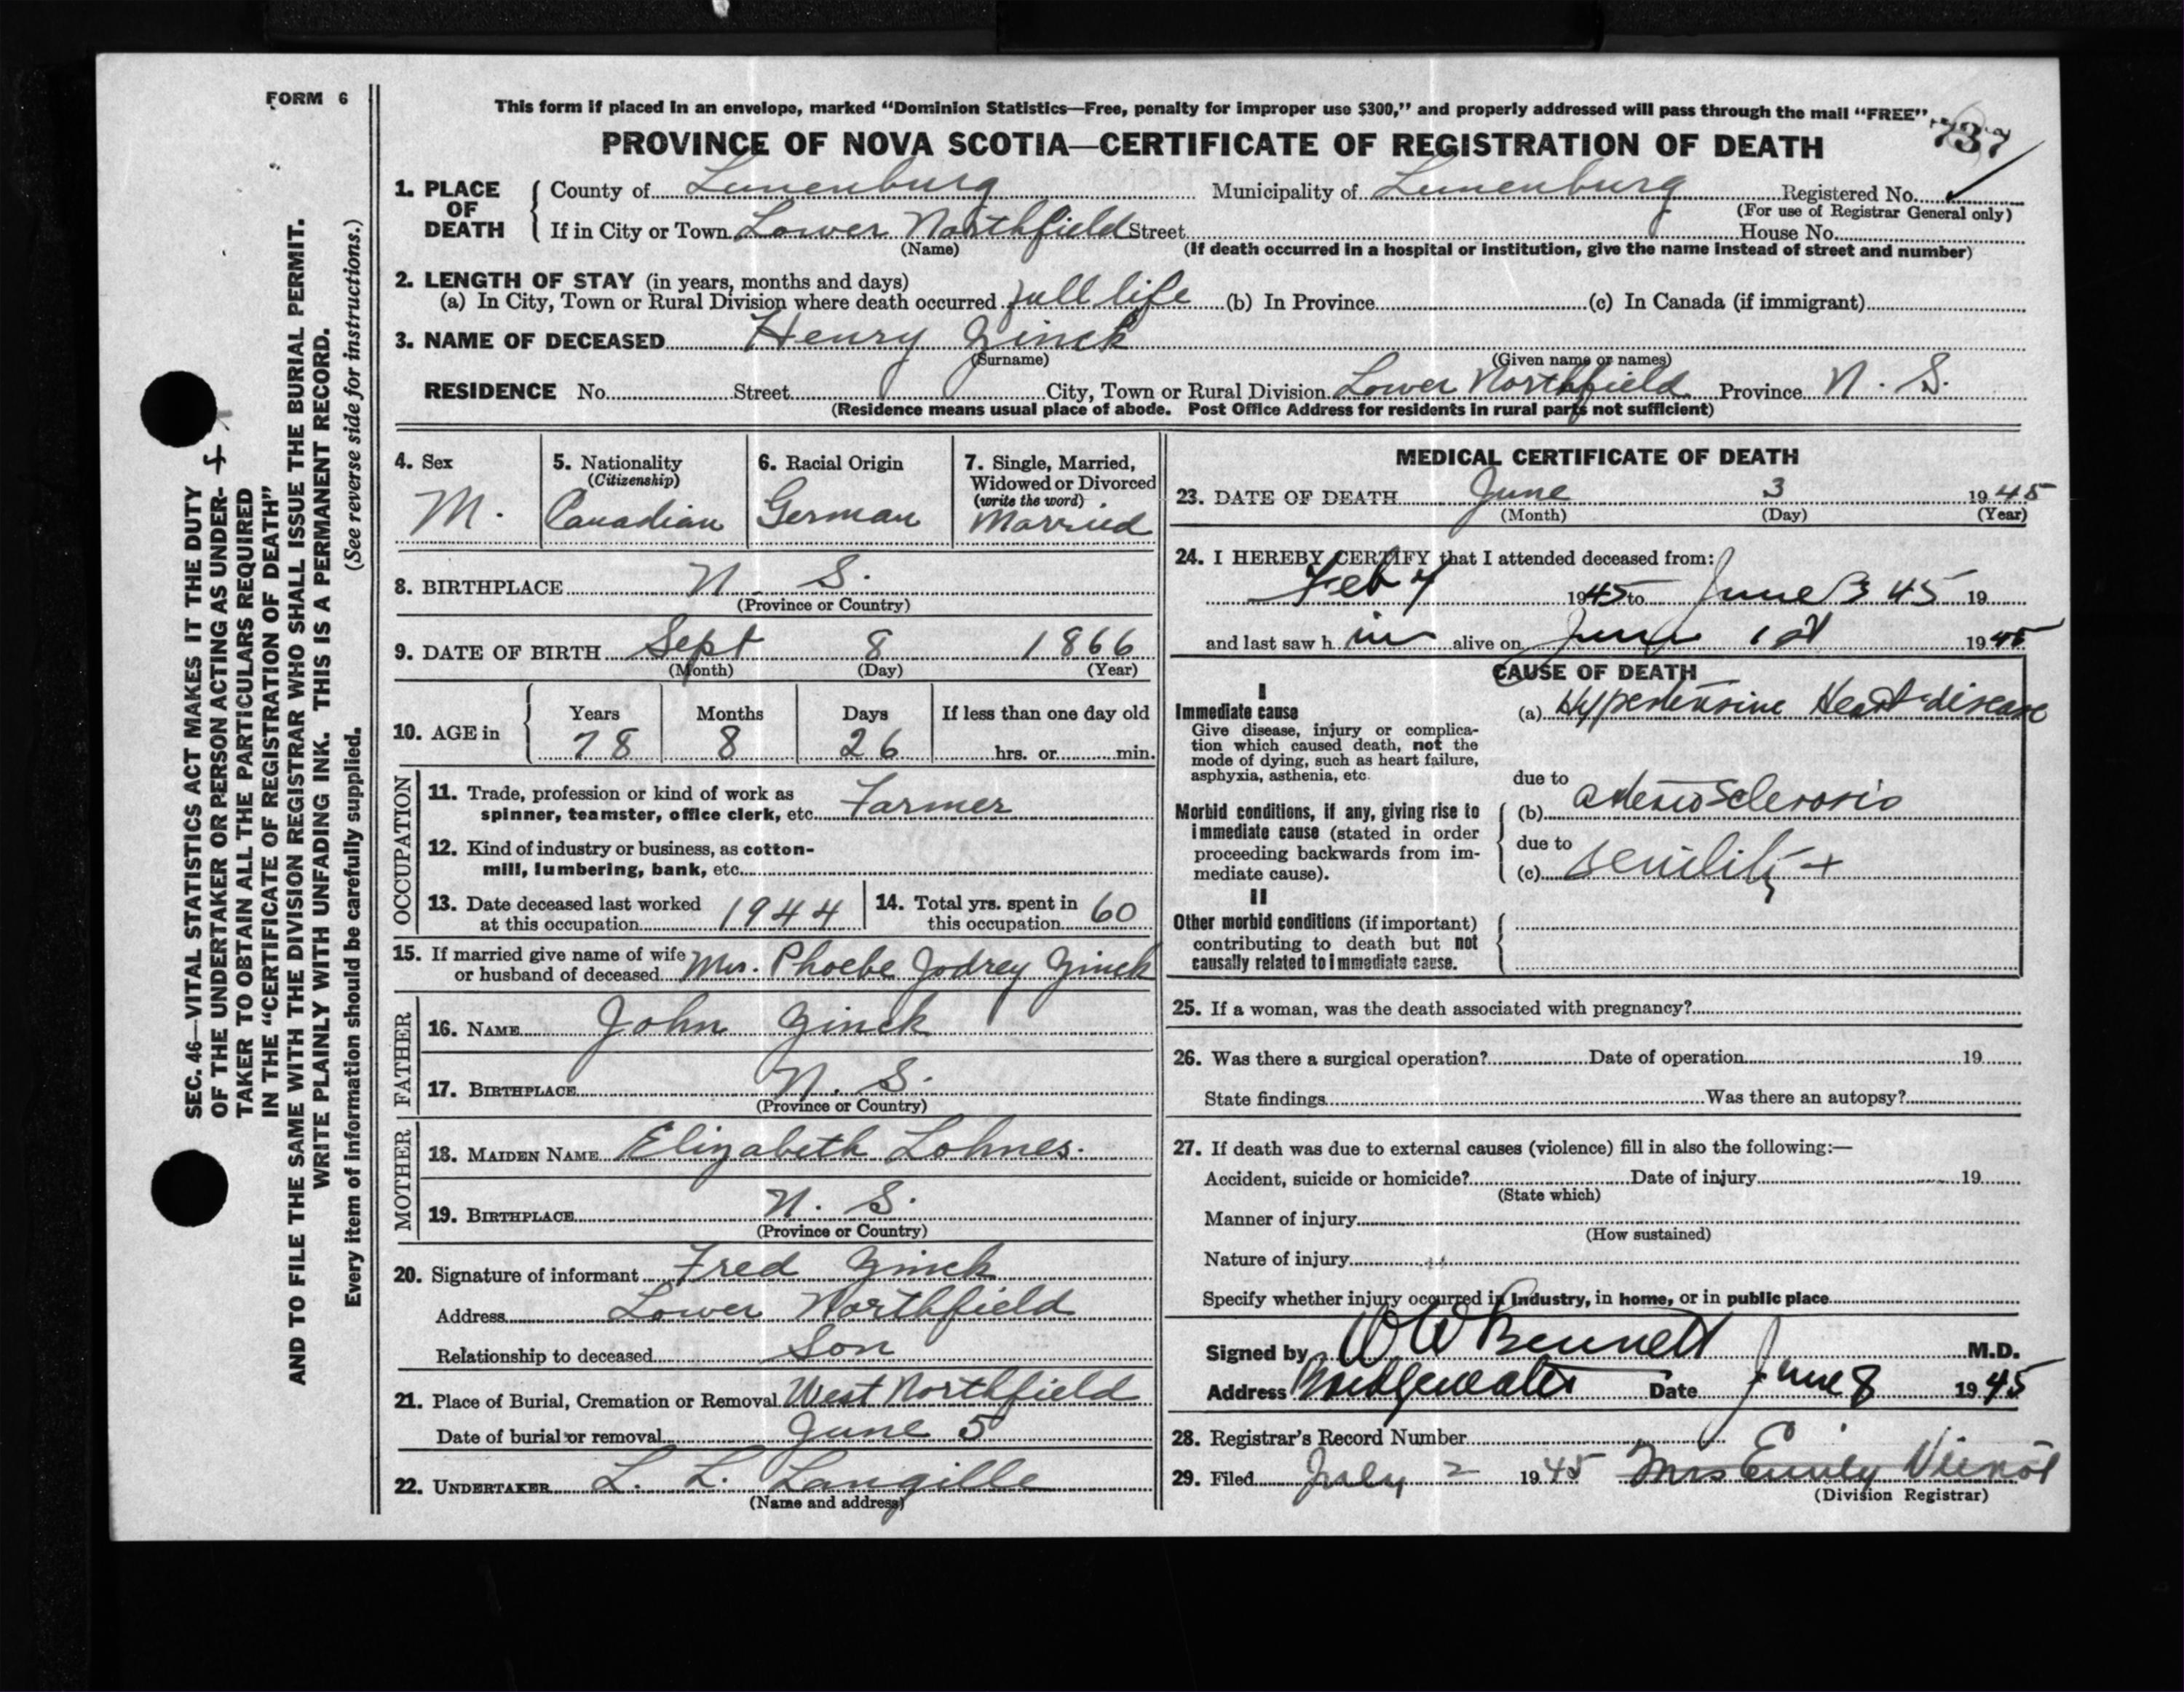 FORM 6
This form if placed in an envelope, marked “Dominion Statistics—Free, penalty for improper use $300,” and properly addressed will pass through the mail “FREE”
737
PROVINCE OF NOVA SCOTIA—CERTIFICATE OF REGISTRATION OF DEATH
1. PLACE OF DEATH
County of Lunenburg Municipality of Lunenburg Registered No.
(For use of Registrar General only)
If in City or Town Lower Northfield Street House No.
(Name) (If death occurred in a hospital or institution, give the name instead of street and number)
2. LENGTH OF STAY (in years, months and days)
(a) In City, Town or Rural Division where death occurred full life (b) In Province (c) In Canada (if immigrant)
3. NAME OF DECEASED Henry Zinck
(Surname) (Given name or names)
RESIDENCE No. Street City, Town or Rural Division Lower Northfield Province N. S.
(Residence means usual place of abode. Post Office Address for residents in rural parts not sufficient)
4. Sex
M.
5. Nationality
(Citizenship)
Canadian
6. Racial Origin
German
7. Single, Married,
Widowed or Divorced
(write the word)
Married
8. BIRTHPLACE N. S.
(Province or Country)
9. DATE OF BIRTH Sept 8 1866
(Month) (Day) (Year)
10. AGE in
Years Months Days If less than one day old
78 8 26 hrs. or min.
OCCUPATION
11. Trade, profession or kind of work as
spinner, teamster, office clerk, etc. Farmer
12. Kind of industry or business, as cotton-
mill, lumbering, bank, etc.
13. Date deceased last worked
at this occupation 1944
14. Total yrs. spent in
this occupation 60
15. If married give name of wife
or husband of deceased Mrs. Phoebe Jodrey Zinck
FATHER
16. NAME John Zinck
17. BIRTHPLACE N. S.
(Province or Country)
MOTHER
18. MAIDEN NAME Elizabeth Lohnes.
19. BIRTHPLACE N. S.
(Province or Country)
20. Signature of informant Fred Zinck
Address Lower Northfield
Relationship to deceased Son
21. Place of Burial, Cremation or Removal West Northfield
Date of burial or removal June 5
22. UNDERTAKER L. L. Langille
(Name and address)
MEDICAL CERTIFICATE OF DEATH
23. DATE OF DEATH June 3 1945
(Month) (Day) (Year)
24. I HEREBY CERTIFY that I attended deceased from:
Feb 4 1945 to June 3 45 19
and last saw h im alive on June 1st 1945
CAUSE OF DEATH
I
Immediate cause
Give disease, injury or complica-
tion which caused death, not the
mode of dying, such as heart failure,
asphyxia, asthenia, etc.
(a) Hypertensive Heart disease
due to
Morbid conditions, if any, giving rise to
immediate cause (stated in order
proceeding backwards from im-
mediate cause).
(b) arteriosclerosis
due to
(c) senility +
II
Other morbid conditions (if important)
contributing to death but not
causally related to immediate cause.
25. If a woman, was the death associated with pregnancy?
26. Was there a surgical operation? Date of operation 19
State findings Was there an autopsy?
27. If death was due to external causes (violence) fill in also the following:—
Accident, suicide or homicide? Date of injury 19
(State which)
Manner of injury
(How sustained)
Nature of injury
Specify whether injury occurred in industry, in home, or in public place
Signed by W W Bennett M.D.
Address Bridgewater Date June 8 1945
28. Registrar's Record Number
29. Filed July 2 1945 Mrs Emily Vienot
(Division Registrar)
SEC. 46—VITAL STATISTICS ACT MAKES IT THE DUTY
OF THE UNDERTAKER OR PERSON ACTING AS UNDER-
TAKER TO OBTAIN ALL THE PARTICULARS REQUIRED
IN THE “CERTIFICATE OF REGISTRATION OF DEATH”
AND TO FILE THE SAME WITH THE DIVISION REGISTRAR WHO SHALL ISSUE THE BURIAL PERMIT.
WRITE PLAINLY WITH UNFADING INK. THIS IS A PERMANENT RECORD.
Every item of information should be carefully supplied. (See reverse side for instructions.)